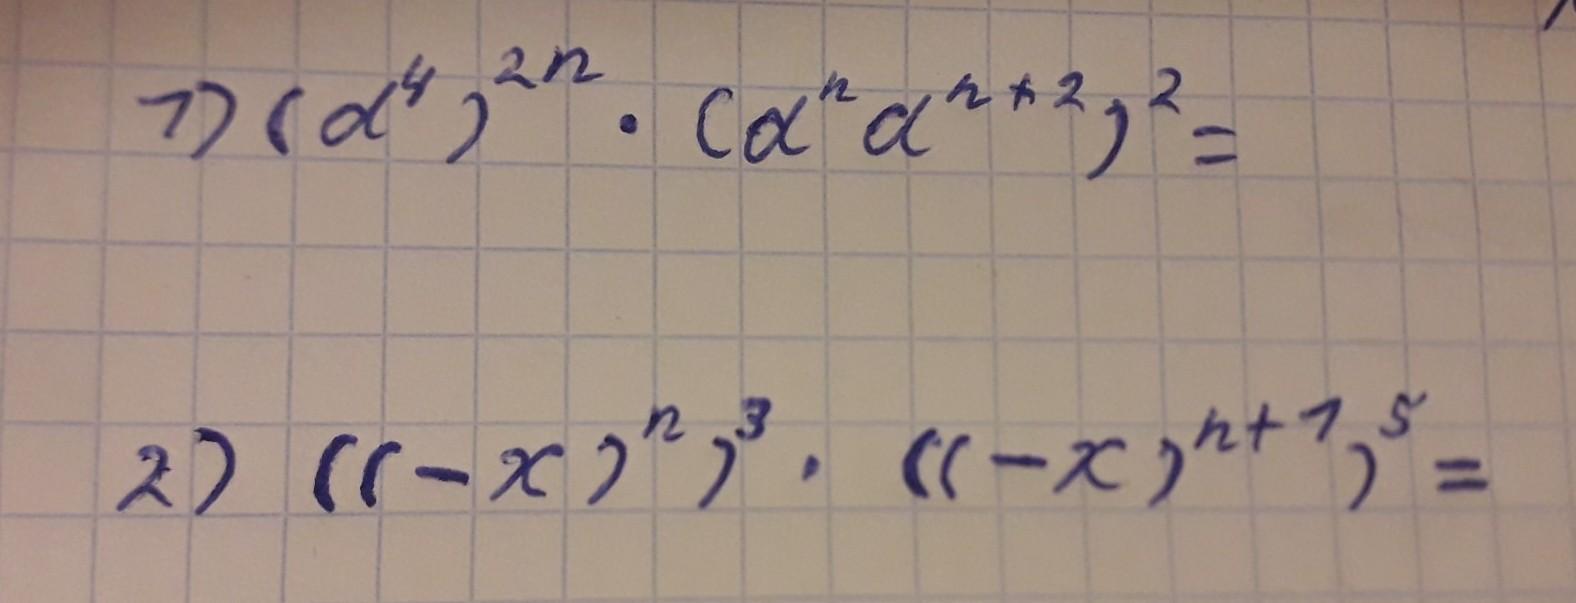 1) (a⁴)²ⁿ · (aⁿaⁿ⁺²)² =
2) ((-x)ⁿ)³ · ((-x)ⁿ⁺¹)⁵ =